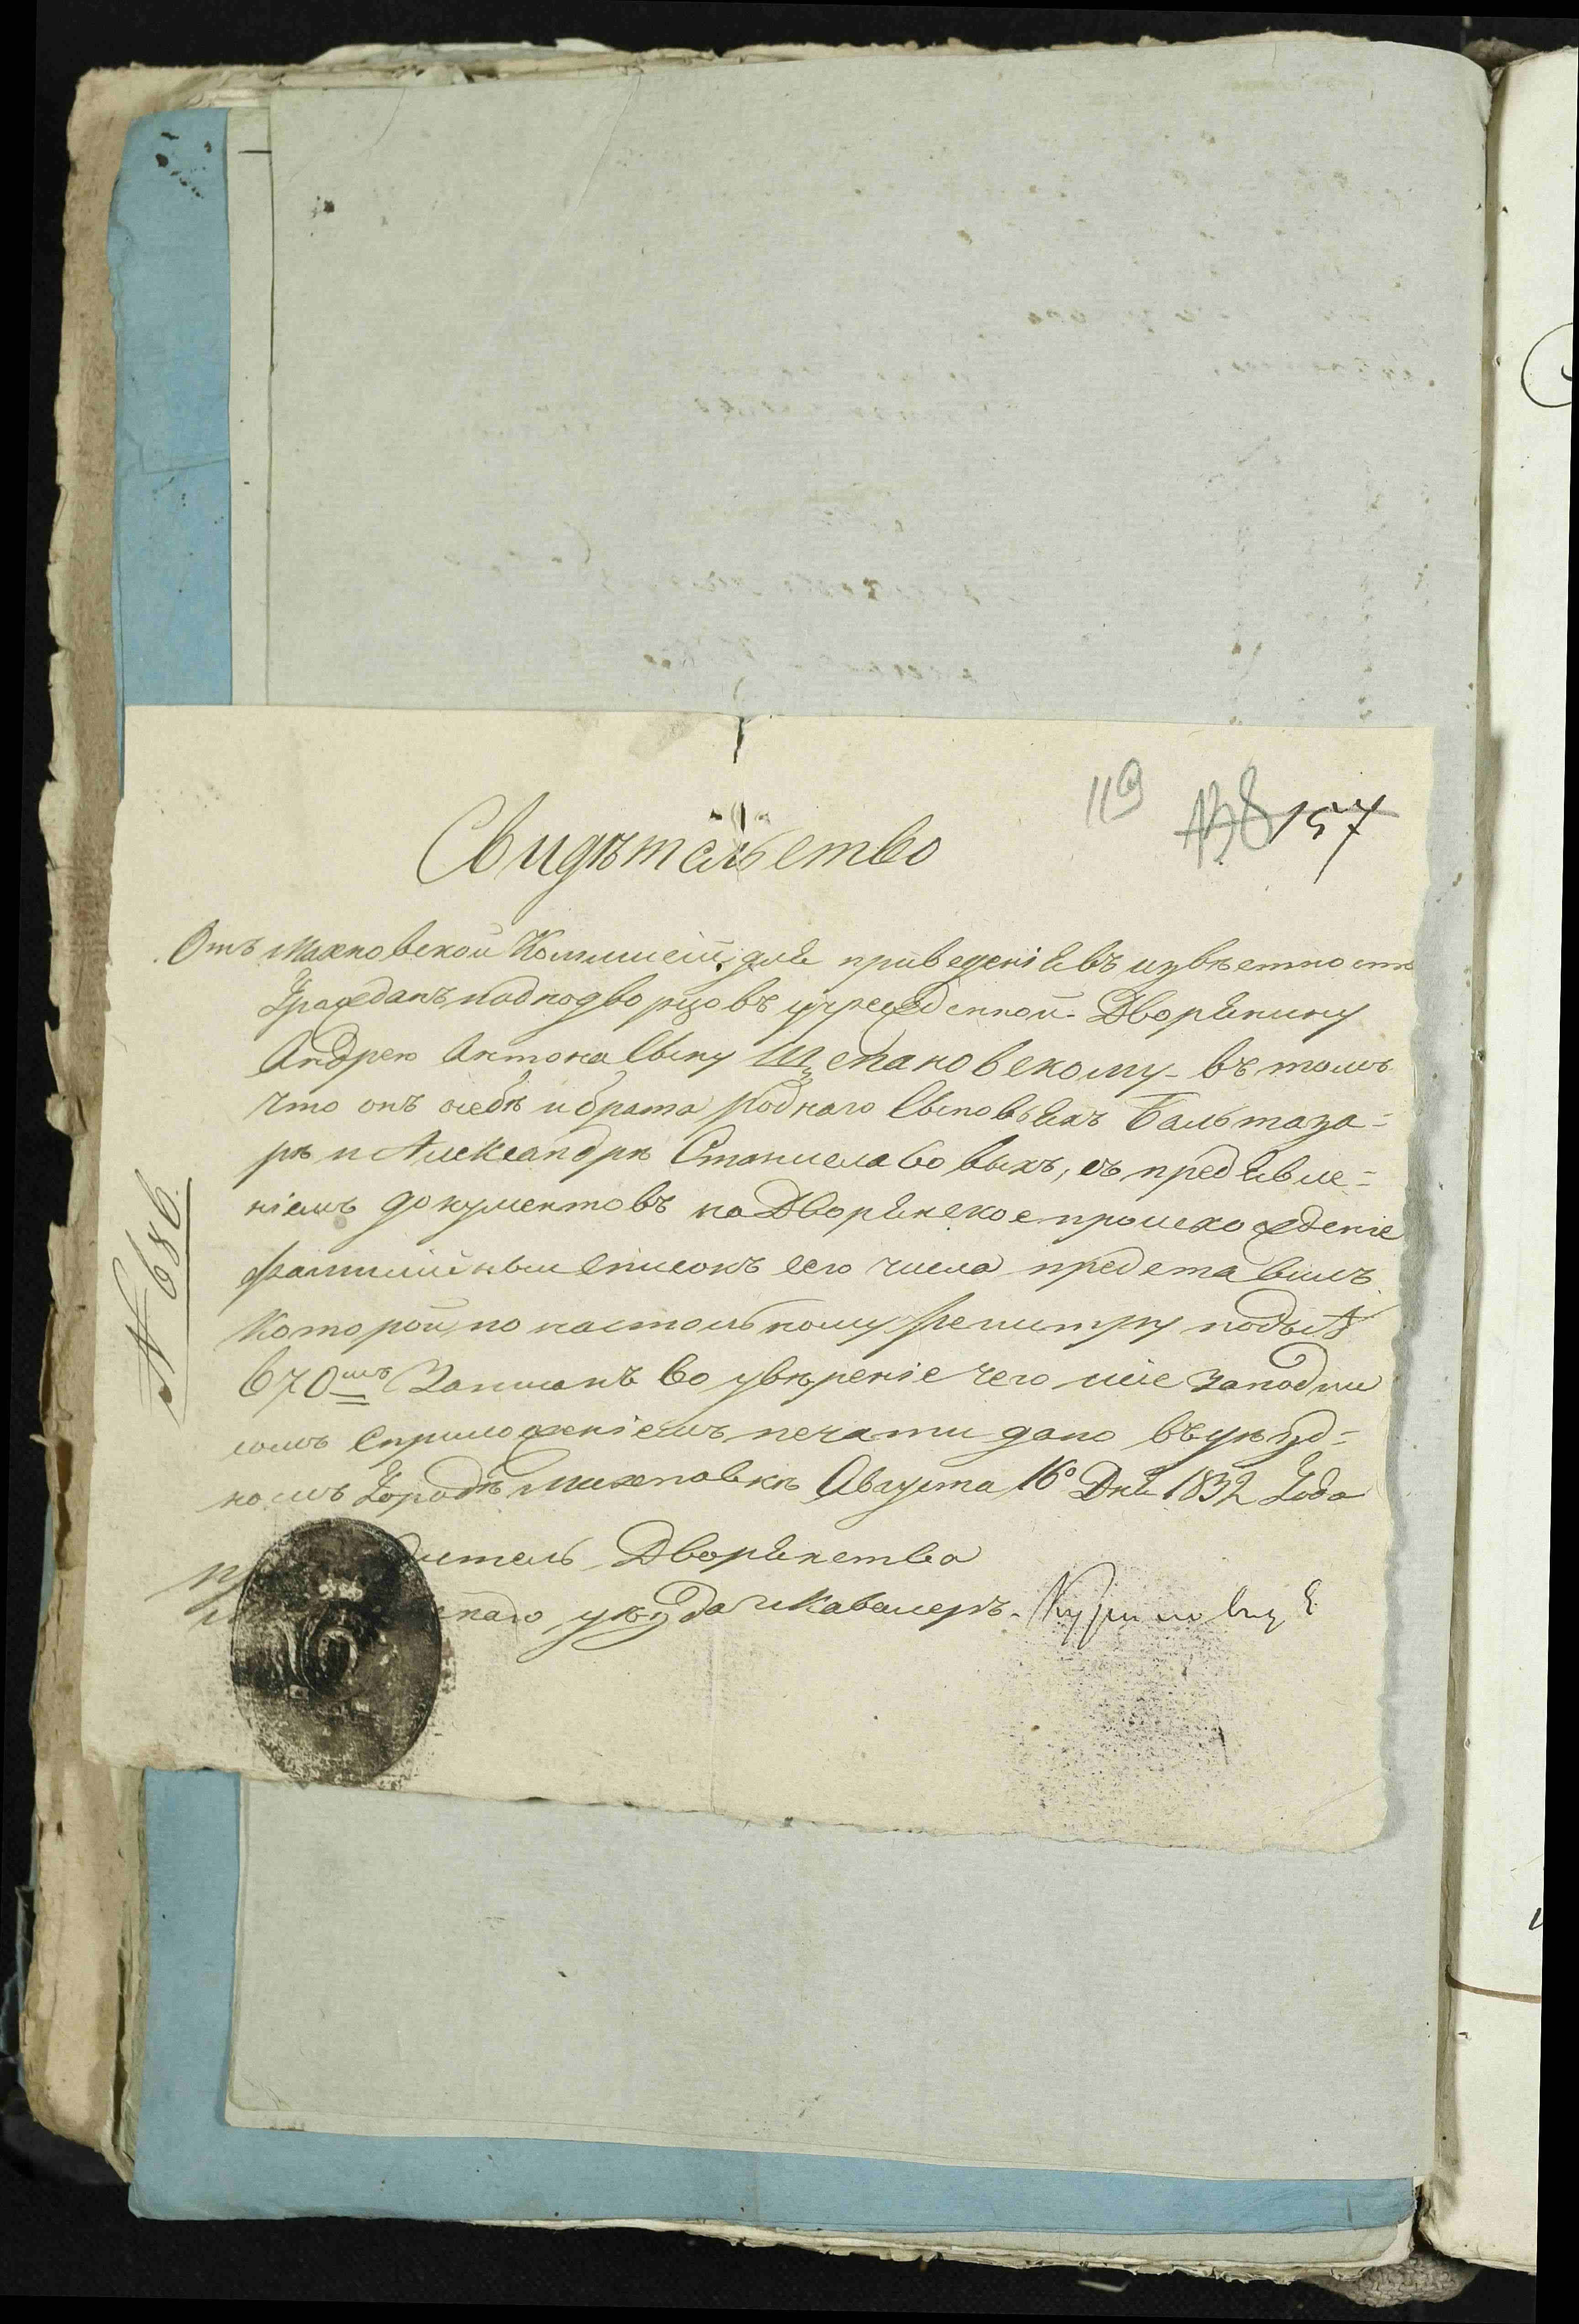 119 138 157
Свидѣтельство
Отъ Махновской Коммисіи, для приведенія въ извѣстность
Гражданъ иоднодворцовъ учрежденной. Дворянину
Андрею Антона Сыну Щепановскому - въ томъ
что онъ осебѣ и брата роднаго Сыновьяхъ Бальтаза-
рѣ и Александрѣ Станиславовыхъ, съ предъявле-
ніемъ документовъ на Дворянское происхожденіе
фамилійный Списокъ сего числа представилъ.
Которой, по настольному регистру подъ №
670мъ Записанъ Во увѣреніе чего сіе заподпи
сомъ Сприложеніемъ печати дано въуѣзд-
номъ Городѣ Махновкѣ Августа 16о Дня 1832 Года
дитель Дворянства
скаго уѣзда и Кавалеръ.
N 686